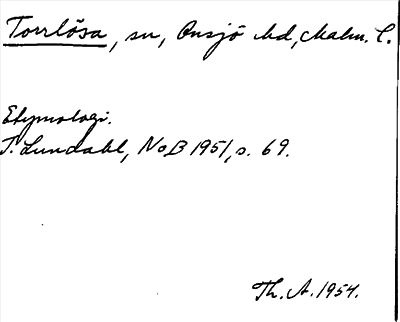 Torrlösa, sn, Onsjö hd, Malm. l.
Etymologi.
I. Lundahl, NoB 1951, s. 69.
Th. A. 1954.